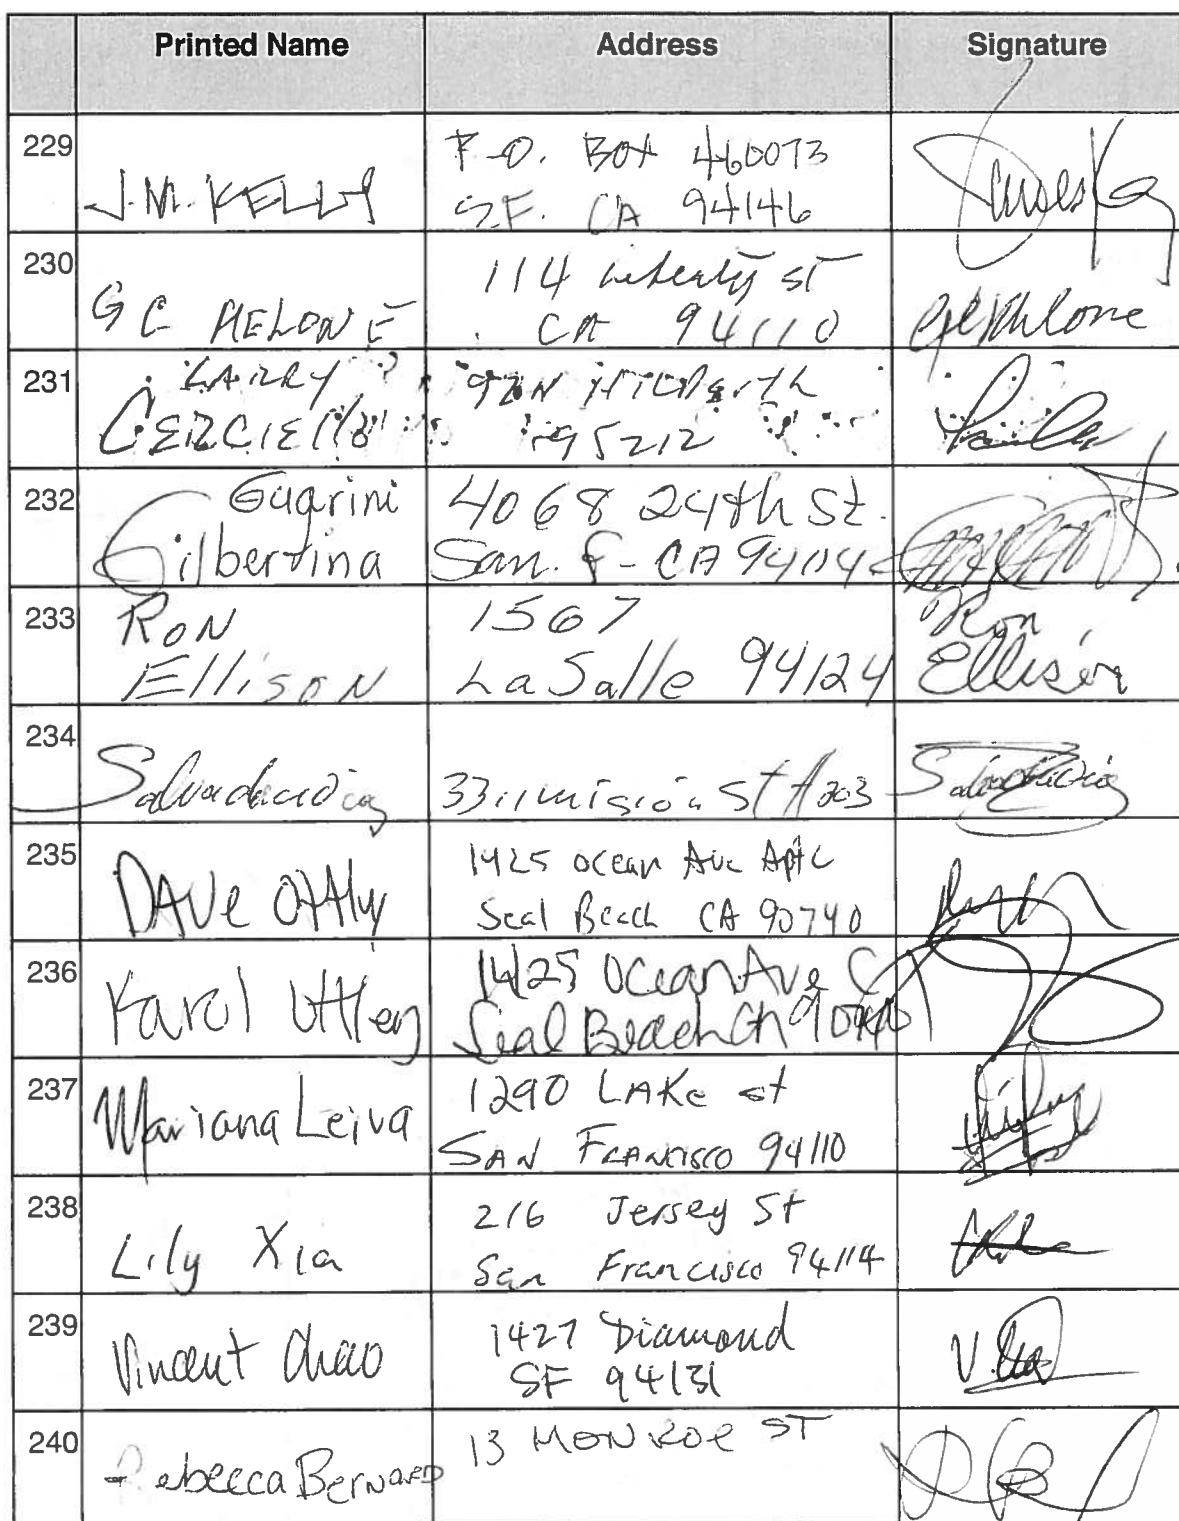 Printed Name Address Signature
229
J.M. KELLY
P.O. BOX 460073
S.F. CA 94146
230
GC MELONE
114 Liberty ST
CA 94110
231
LARRY
CERCIELLO
95212
232
Guarini
Gilbertina
4068 24th St.
San. F - CA 94114
233
RON
EllisoN
1567
LaSalle 94124
Ron
Ellison
234
3311 mision St # 203
235
DAVe Ottly
1425 ocean Ave Apt C
Seal Beach CA 90740
236
Karol Uttley
1425 Ocean Ave C
Seal Beach CA 90740
237
Mariana Leiva
1290 LAKe st
SAN FRANCISCO 94110
238
Lily Xia
216 Jersey St
San Francisco 94114
239
Vincent Chao
1427 Diamond
SF 94131
240
Rebecca BernARD
13 MONROe ST